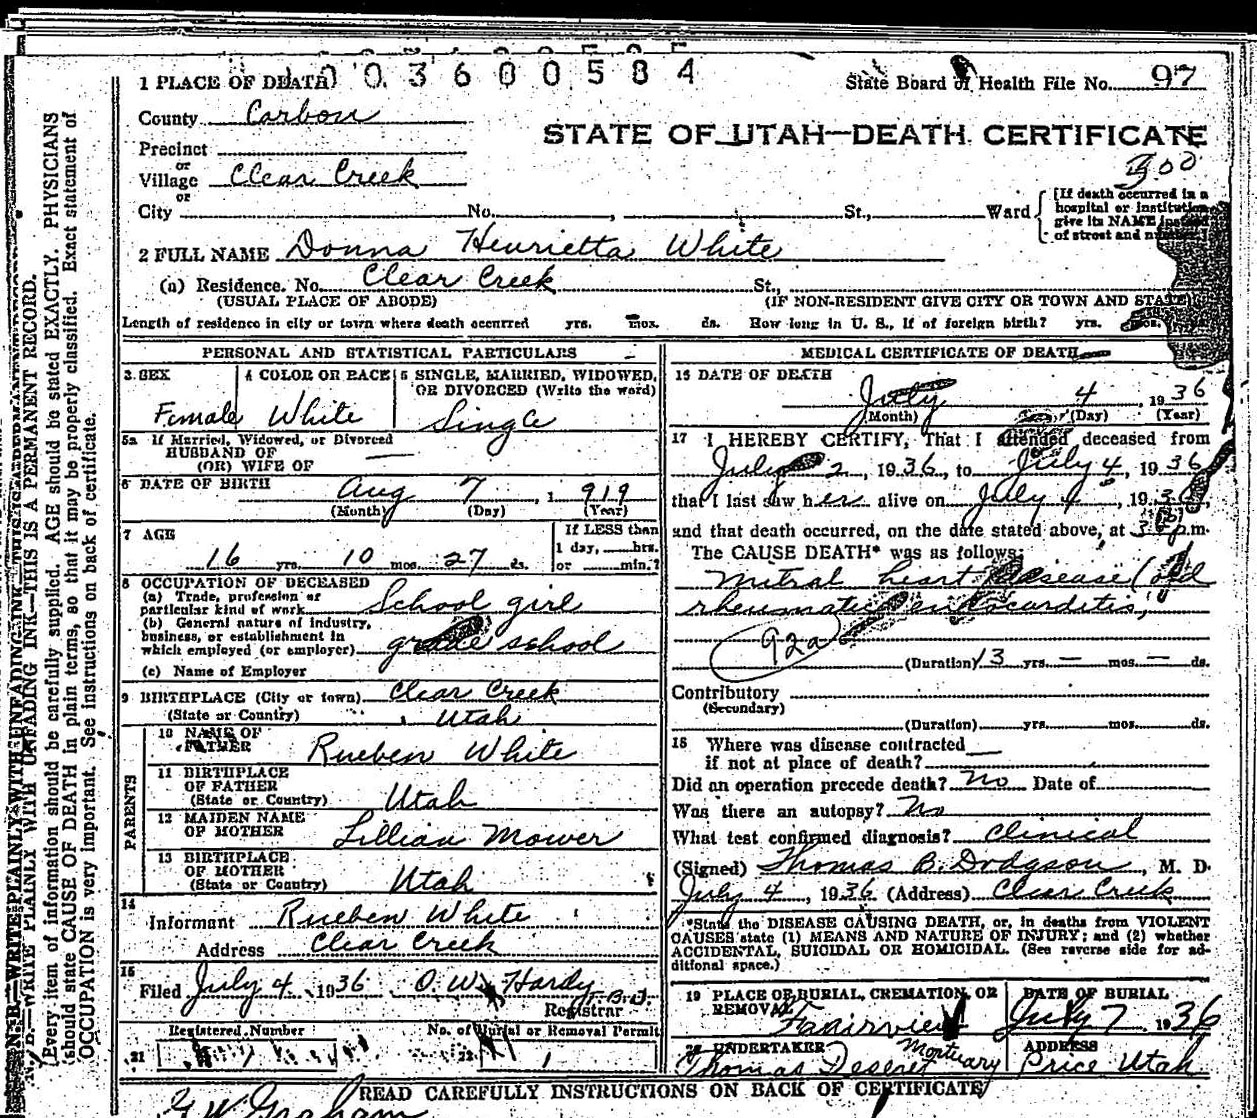 1003600584
1 PLACE OF DEATH State Board of Health File No. 97
County Carbon
STATE OF UTAH—DEATH CERTIFICATE
Precinct
or
Village Clear Creek
or
City No. , St., Ward
[If death occurred in a
hospital or institution
give its NAME instead
of street and number.]
2 FULL NAME Donna Henrietta White
(a) Residence. No. Clear Creek St.,
(USUAL PLACE OF ABODE) (IF NON-RESIDENT GIVE CITY OR TOWN AND STATE)
Length of residence in city or town where death occurred yrs. mos. ds. How long in U. S., if of foreign birth? yrs. mos.
PERSONAL AND STATISTICAL PARTICULARS
3 SEX 4 COLOR OR RACE 5 SINGLE, MARRIED, WIDOWED,
OR DIVORCED (Write the word)
Female White Single
5a If Married, Widowed, or Divorced
HUSBAND OF
(OR) WIFE OF —
6 DATE OF BIRTH Aug 7, 1919
(Month) (Day) (Year)
7 AGE If LESS than
1 day, hrs.
16 yrs. 10 mos. 27 ds. or min.?
8 OCCUPATION OF DECEASED
(a) Trade, profession or
particular kind of work School girl
(b) General nature of industry,
business, or establishment in
which employed (or employer) grade school
(c) Name of Employer
9 BIRTHPLACE (City or town) Clear Creek
(State or Country) Utah
PARENTS
10 NAME OF
FATHER Rueben White
11 BIRTHPLACE
OF FATHER
(State or Country) Utah
12 MAIDEN NAME
OF MOTHER Lillian Mower
13 BIRTHPLACE
OF MOTHER
(State or Country) Utah
14
Informant Rueben White
Address Clear Creek
15
Filed July 4, 1936 O. W. Hardy
Registrar
Registered Number No. of Burial or Removal Permit
21 22 1
MEDICAL CERTIFICATE OF DEATH
15 DATE OF DEATH
July 4, 1936
(Month) (Day) (Year)
17 I HEREBY CERTIFY, That I attended deceased from
July 2, 1936, to July 4, 1936
that I last saw her alive on July 4, 193
and that death occurred, on the date stated above, at p.m.
The CAUSE DEATH* was as follows:
Mitral heart disease (old
rheumatic endocarditis,
92a
(Duration) 13 yrs. — mos. — ds.
Contributory
(Secondary)
(Duration) yrs. mos. ds.
18 Where was disease contracted
if not at place of death?
Did an operation precede death? No Date of
Was there an autopsy? No
What test confirmed diagnosis? Clinical
(Signed) Thomas B. Dodgson, M. D.
July 4, 1936 (Address) Clear Creek
*State the DISEASE CAUSING DEATH, or, in deaths from VIOLENT
CAUSES state (1) MEANS AND NATURE OF INJURY; and (2) whether
ACCIDENTAL, SUICIDAL OR HOMICIDAL. (See reverse side for ad-
ditional space.)
19 PLACE OF BURIAL, CREMATION, OR
REMOVAL Fairview
DATE OF BURIAL
July 7 1936
20 UNDERTAKER Mortuary
Thomas Deseret
ADDRESS
Price Utah
READ CAREFULLY INSTRUCTIONS ON BACK OF CERTIFICATE
G W Graham
N. B.—WRITE PLAINLY WITH UNFADING INK—THIS IS A PERMANENT RECORD.
Every item of information should be carefully supplied. AGE should be stated EXACTLY. PHYSICIANS
should state CAUSE OF DEATH in plain terms, so that it may be properly classified. Exact statement of
OCCUPATION is very important. See instructions on back of certificate.